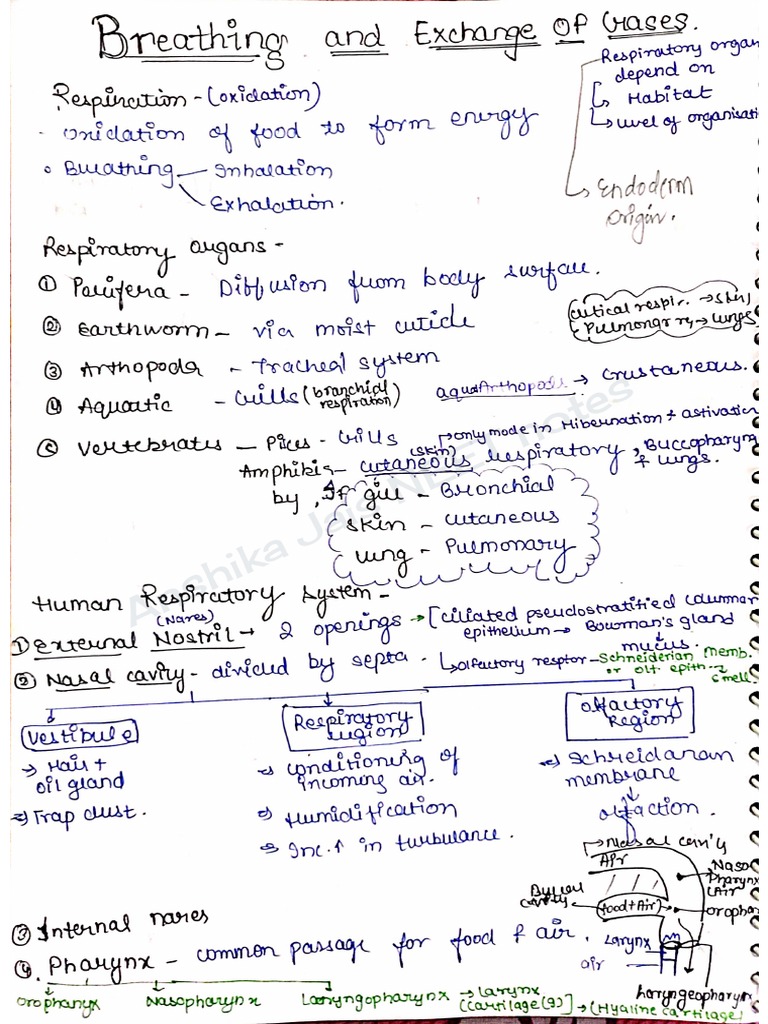 Breathing and Exchange OF Gases.
Respiratory organ
depend on
Habitat
level of organisati
Endoderm
origin.
Respiration - (oxidation)
· oxidation of food to form energy
• Breathing - Inhalation
Exhalation.
Respiratory organs -
① Porifera - Diffusion from body surface.
② Earthworm - via moist cuticle
cutical respir. → skin,
Pulmonary → lungs
③ Arthopoda - Tracheal system
④ Aquatic - Gills (branchial respiration)
aquaArthopods → crustaneous.
⑤ Vertebrates - Pices - Gills
→ only mode in Hibernation + astivation
Amphibia - cutaneous (skin) respiratory, Buccopharyn
& lungs.
by, If gill - Bronchial
skin - cutaneous
lung - Pulmonary
Anshika Jain NEET notes
Human Respiratory system -
① External Nostril (Nares) → 2 openings → [ciliated pseudostratified columnar
epithelium → Bowman's gland
mucus.
② Nasal cavity - divided by septa. ↳ olfactory reptor - Schneiderian memb.
or olf. epith → smell
Vestibule
→ Hair +
oil gland
→ Trap dust.
Respiratory
region
→ conditioning of
incoming air.
→ Humidification
→ Inc. ↑ in turbulance.
olfactory
Region
→ Schreidanam
membrane
↓
olfaction.
→ Nasal cavity
Air
Naso
Pharynx
(Air
Buccal
cavity
food + Air
oropha
Larynx
air
haryngeopharyn
③ Internal nares
④ Pharynx - common passage for food & air.
oropharyx
Nasopharynx
Laryngopharynx → larynx
(cartilage (9)] → (Hyaline cartilage)